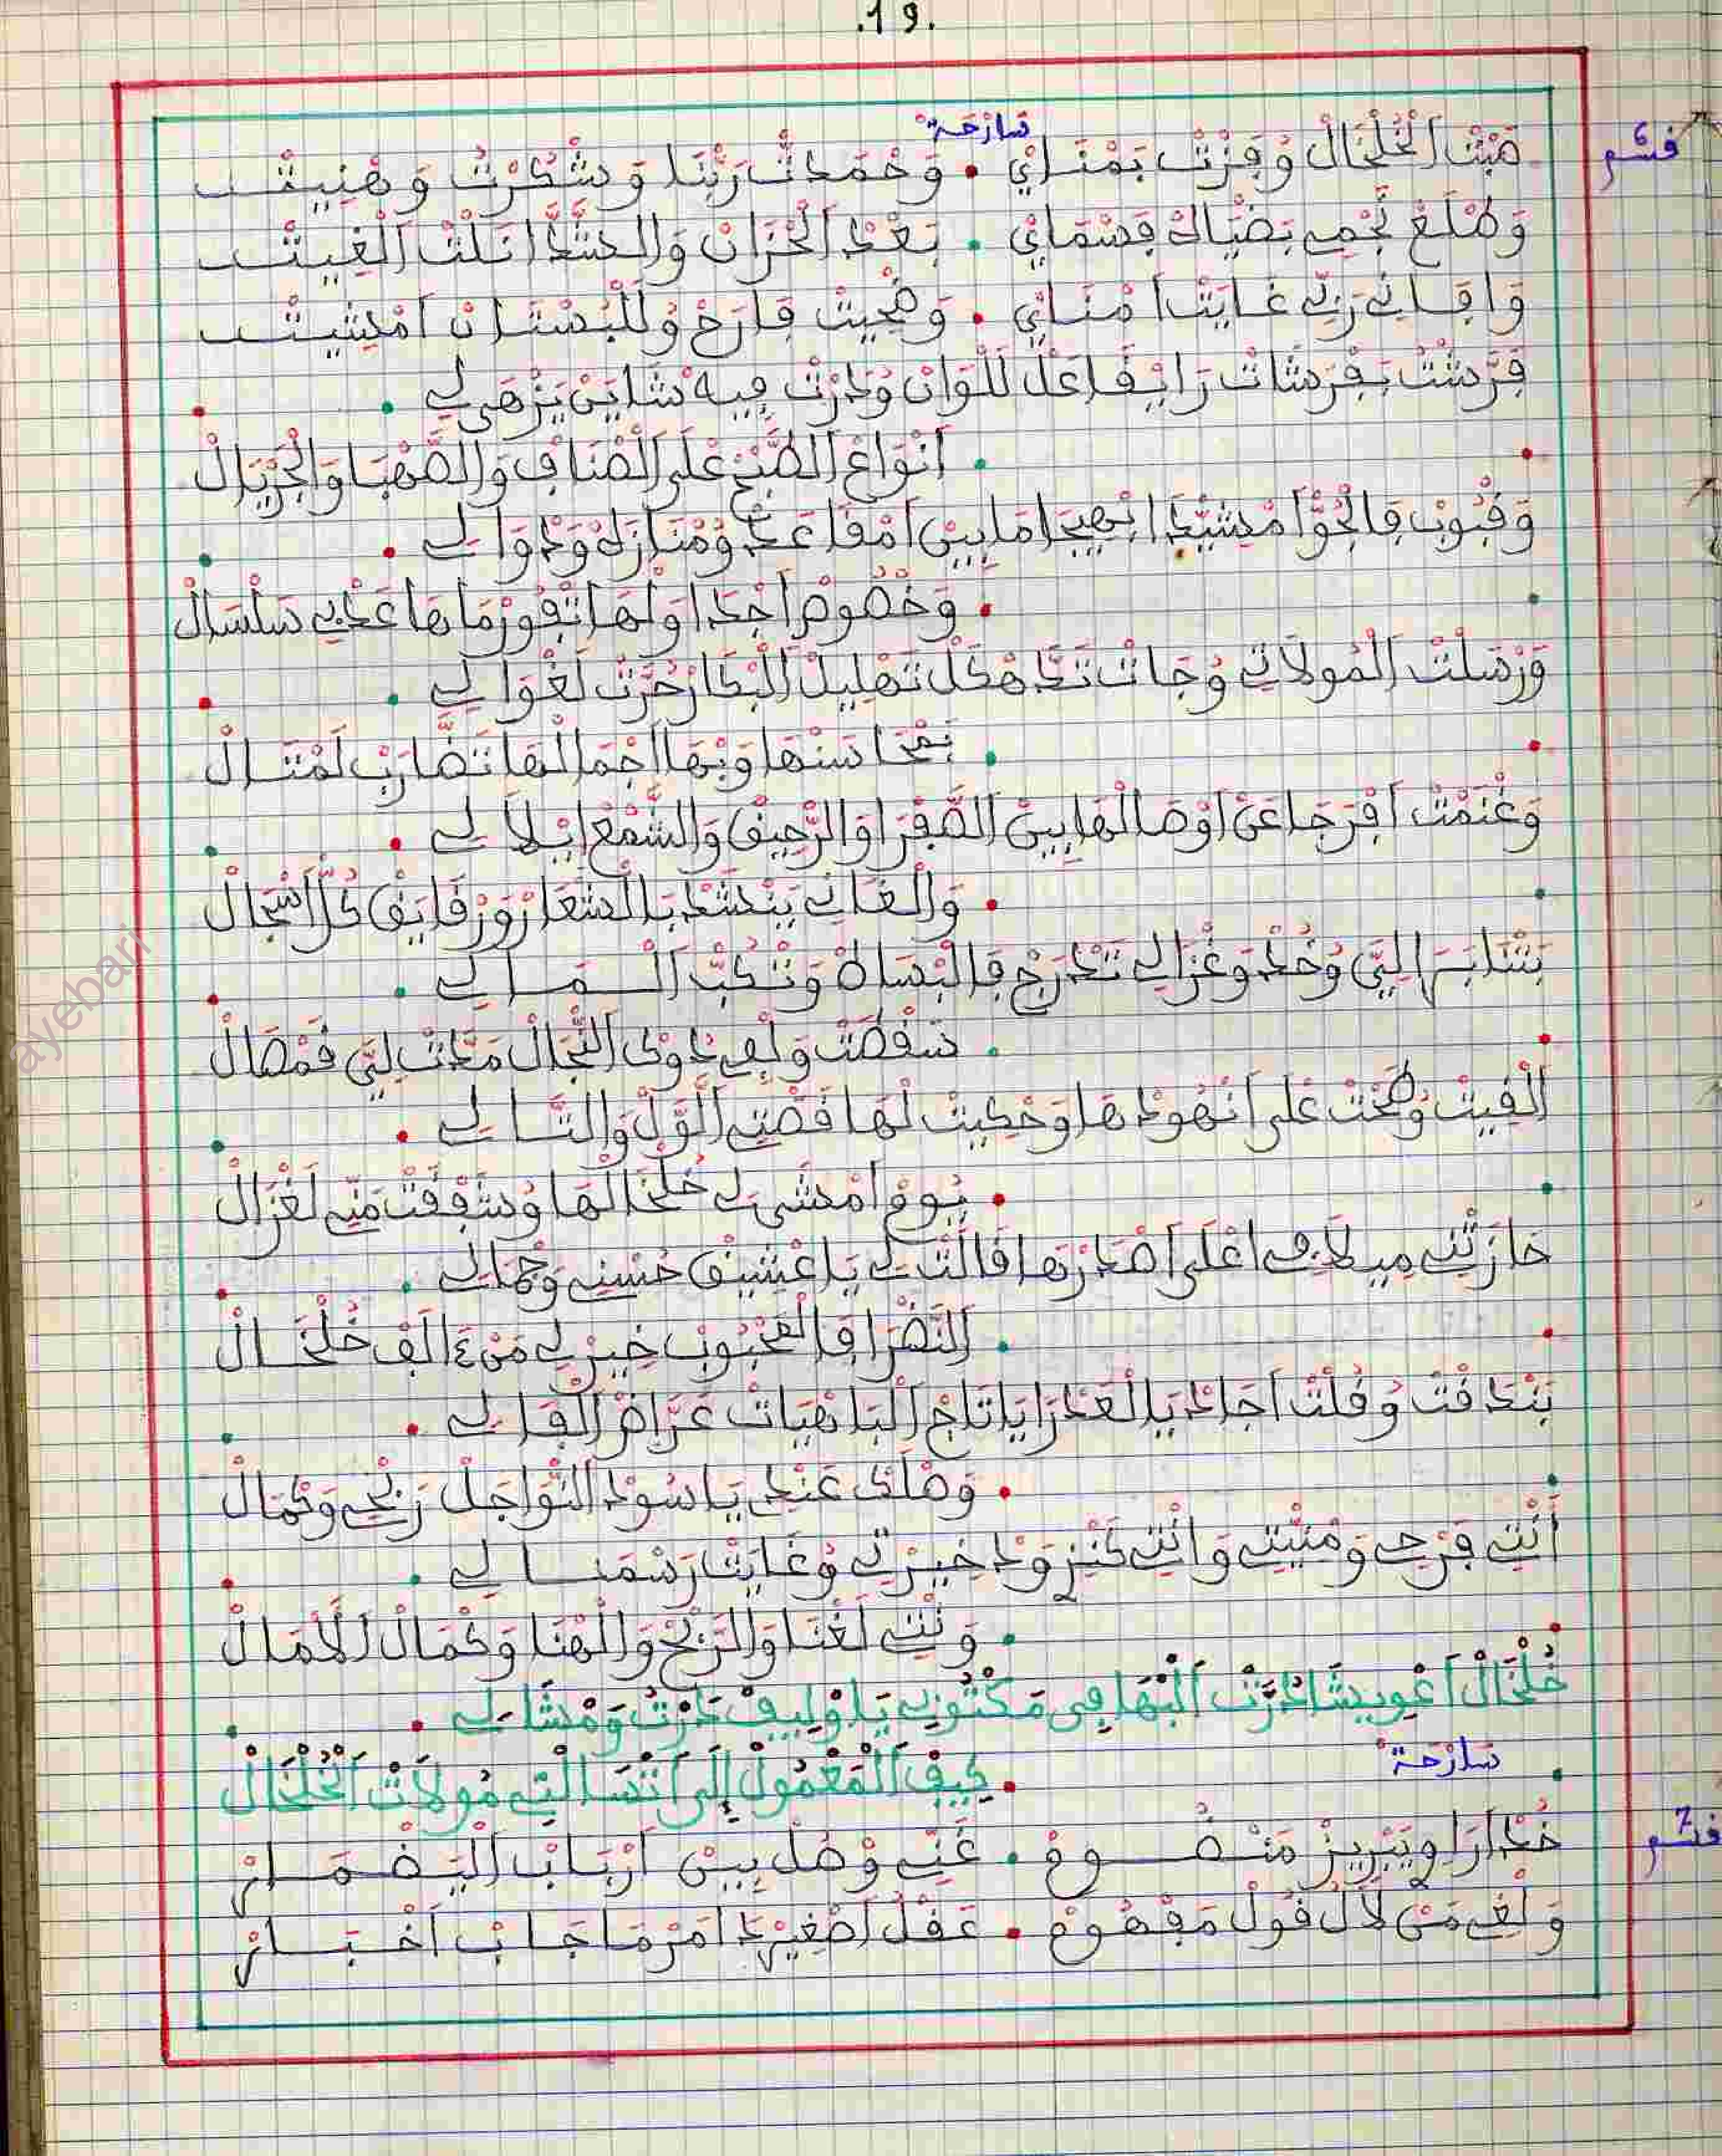 .19.
قسم 6
سارحة
صَبْتْ اَلْخُلْخَالْ وُفَزْتْ بَمْنَايْ . وَحْمَدْتْ رَبْنَا وَشْكَرْتْ وَهْنِيتْ
وَطْلَعْ نَجْمِي بَضْيَاهْ فَسْمَايْ . بَعْدْ اَلْحْزَانْ وَالشَّدَّا نَلْتْ اَلْغِيتْ
وَافَانِي رَبِّي غَايَتْ اَمْنَايْ . وَضْحِيتْ فَارَحْ وُلَلْبُسْتَانْ اَمْشِيتْ
فَرَّشْتْ بَفْرَشَاتْ رَايْفَا عَلْ لَلْوَانْ وُدَرْتْ فِيهْ شَايَنْ يَزْهَى لِي .
. اَنْوَاعْ اَلطَّبْخْ عْلَى اَلْصْنَافْ وَالصَّهْبَا وَالْجَرْيَالْ
وَقْبُوبْ فَالْجُوّْ اَمْشَيّْدَا بْهِيجَا مَابِينْ اَمْقَاعَدْ وُمْنَازَهْ وَدْوَالِي .
. وَخْصُوصْ اَجْدَاوَلْهَا تْفُورْ مَاهَا عَذْبِي سَلْسَالْ
وَرْسَلْتْ اَلْمُولاَتِي وُجَاتْ تَتَّهْكَلْ تَهْلِيلْ اَلْبْكَارْ حُرَّتْ لَغْوَالِي .
. بَمْحَاسَنْهَا وَبْهَا اَجْمَالْهَا تَضَّارَبْ لَمْتَالْ
وَغْنَمْتْ اَفْرَجَا عَنْ اَوْصَالْهَا بِينْ اَلصَّفْرَا وَالرَّحِيقْ وَالشَّمْعْ اِيْلاَلِي .
. وَالْغَانِي يَنْشَدْ بَالْشْعَارْ وَرْقَايَقْ كُلّْ اَسْجَالْ
وُخْدْ وَغْزَالِي تَدْرَجْ فَالْبْسَاطْ وَتْكَبّْ اَلْـمَـالِي .
. سَقْطَتْ وَلْفِي دُوكْ اَلنّْجَالْ مَدَّتْ لِيَّ فَمْصَالْ
اَلْقِيتْ وُطَحْتْ عْلَى اَنْهُودْهَا وَحْكِيتْ لْهَا قَصْتِي اَلَّوّلْ وَالتَّالِي .
. يُومْ اَمْشَى لِي خُلْخَالْهَا وُشَفّْقَتْ مَنِّي لَغْزَالْ
حَازَتْنِي مِيلاَفِي اَعْلَى اَصْدَارْهَا قَالَتْ لِي يَا عْشِيقْ حُسْنِي وَجْمَالِي .
. اَلنَّضْرَا فَالْمَحْبُوبْ خِيرْ لِي مَنْ ٤ اَلَفْ خُلْخَالْ
بَنْدَقْتْ وُقُلْتْ اَجَادْ يَالْعَدْرَا يَا تَاجْ اَلْبَاهْيَاتْ عَرَّاضْ اَلْفَالِي .
. وَصْلَكْ عَنْدِي يَا سُودْ اَلنّْوَاجَلْ رَبْحِي وَكْمَالْ
اَنْتِي فَرْحِي وَمْنِيّْتِي وَانْتِي كَنْزِي وَدْخِيرْتِي وُغَايَتْ رَسْمَـالِي .
. وَنْتِي لَغْنَا وَالرَّبْحْ وَالْهْنَا وَكْمَالْ اَلآمَالْ
خُلْخَالْ اَعْوِيشَا دُرَّتْ اَلْبْهَا فِي مَكْتُوبِي يَا وْلِيفْ دَرْتُ وَمْشَا لِي .
. كِيفْ اَلْمَعْمُولْ إِلَى اَتْسَالْنِي مُولاَتْ اَلْخُلْخَالْ
سَارْحَة
قسم 7
خُدْ اَرَاوِي بَرِيزْ مَنْـضُـومْ . غَنِّي وْصُلْ بِينْ اَرْبَابْ اَلْيَضْمَـارْ
وَلْغِي مَنْ لاَلُ قُولْ مَفْهُومْ . عَقْلُ اَصْغِيرْ دَامَرْ مَا جَابْ اَخْبَـارْ
ayebari